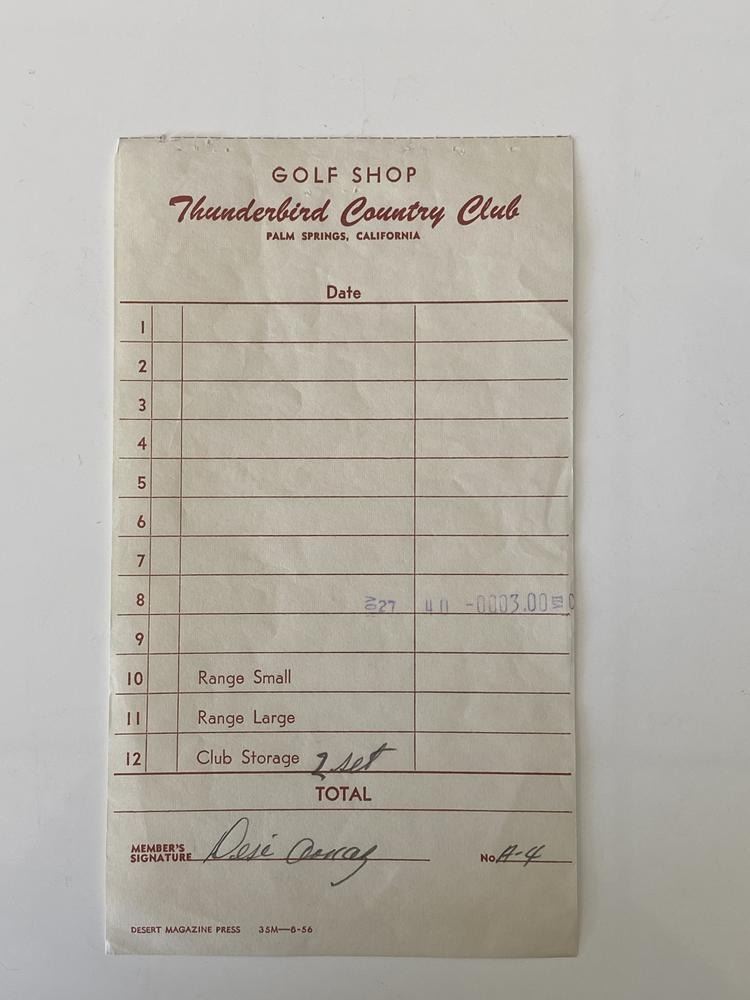 GOLF SHOP
Thunderbird Country Club
PALM SPRINGS, CALIFORNIA
Date
1
2
3
4
5
6
7
8 NOV 27 40 -0003.00
9
10 Range Small
11 Range Large
12 Club Storage 2 set
TOTAL
MEMBER'S SIGNATURE Desi Arnaz No. A-4
DESERT MAGAZINE PRESS 35M—8-56